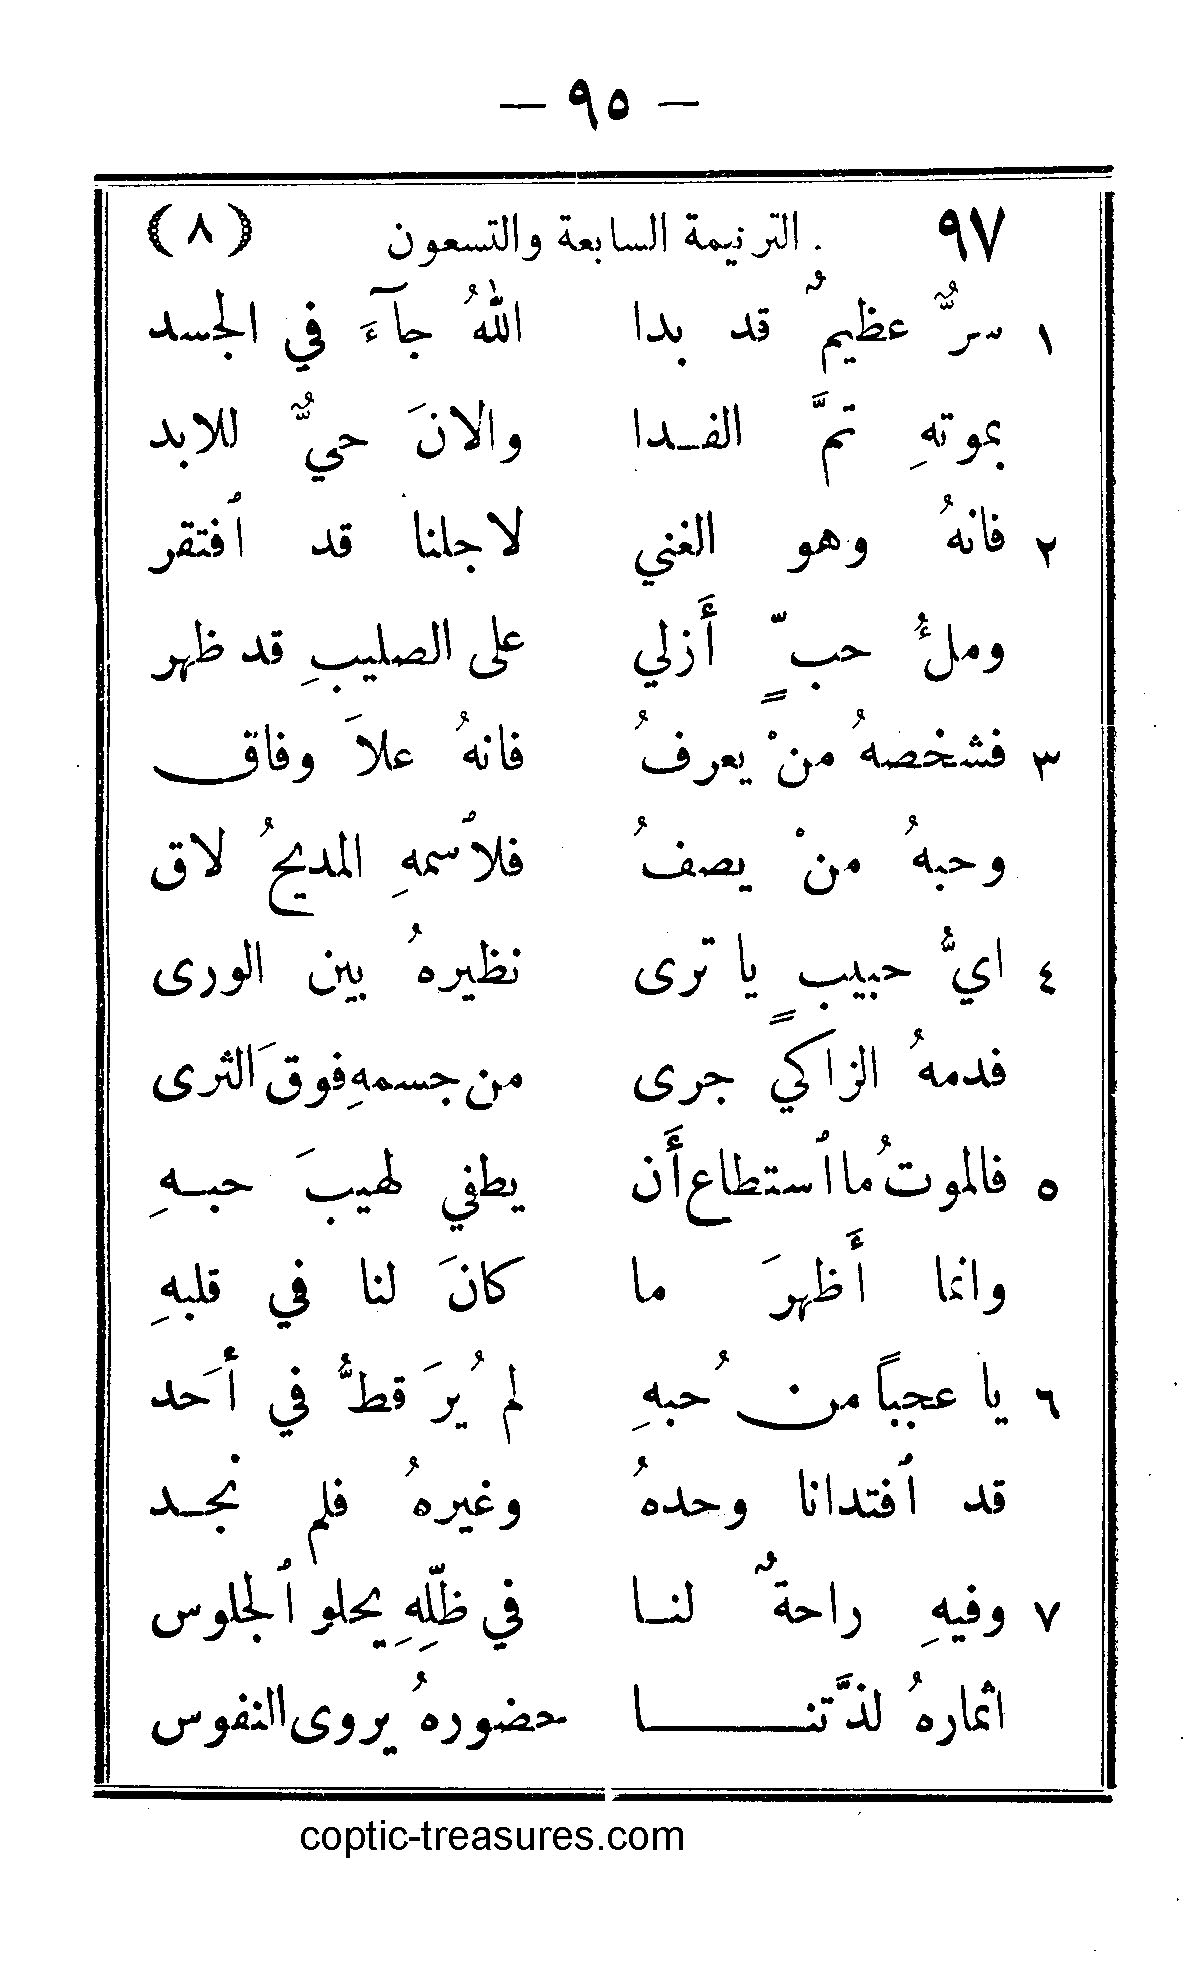 — ٩٥ —
٩٧ الترنيمة السابعة والتسعون (٨)
١ سرٌّ عظيمٌ قد بدا اللهُ جآءَ في الجسد
بموتهِ تمَّ الفـدا والانَ حيٌّ للابد
٢ فانهُ وهو الغني لاجلنا قد ٱفتقر
وملءُ حبٍّ أَزلي على الصليبِ قد ظهر
٣ فشخصهُ منْ يعرفُ فانهُ علاَ وفاق
وحبهُ منْ يصفُ فلاُسمهِ المديحُ لاق
٤ ايُّ حبيبٍ يا ترى نظيرهُ بين الورى
فدمهُ الزاكي جرى من جسمهِ فوقَ الثرى
٥ فالموتُ ما ٱستطاع أَن يطفي لهيبَ حبـهِ
وانما أَظهرَ ما كانَ لنا في قلبهِ
٦ يا عجباً من حُبهِ لم يُرَ قطُّ في أَحد
قد ٱفتدانا وحدهُ وغيرهُ فلم نجـد
٧ وفيهِ راحةٌ لنـا في ظلِّهِ يحلو ٱلجلوس
اثمارهُ لذَّتنـــا حضورهُ يروى النفوس
coptic-treasures.com